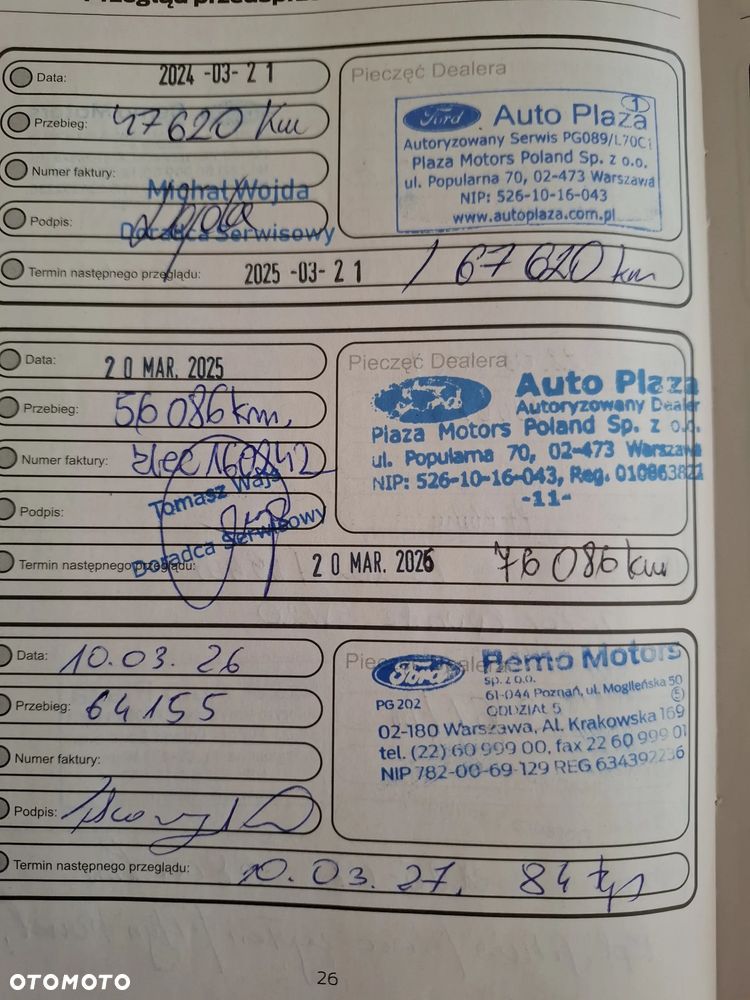 Data: 2024 -03- 2 1
Przebieg: 47620 Km
Numer faktury:
Michał Wojda
Podpis:
Doradca Serwisowy
Termin następnego przeglądu: 2025 -03- 2 1 / 67620 km
Pieczęć Dealera
Ford Auto Plaza 1
Autoryzowany Serwis PG089/L70C1
Plaza Motors Poland Sp. z o.o.
ul. Popularna 70, 02-473 Warszawa
NIP: 526-10-16-043
www.autoplaza.com.pl
Data: 2 0 MAR. 2025
Przebieg: 56086 km,
Numer faktury: zlec 160842
Tomasz
Podpis:
Doradca Serwisowy
Termin następnego przeglądu: 2 0 MAR. 2026 76086 km
Pieczęć Dealera
Ford Auto Plaza
Autoryzowany Dealer
Plaza Motors Poland Sp. z o.o.
ul. Popularna 70, 02-473 Warszawa
NIP: 526-10-16-043, Reg. 010863821
-11-
Data: 10.03.26
Przebieg: 64155
Numer faktury:
Podpis:
Termin następnego przeglądu: 10.03.27, 84 tys
Pieczęć Dealera
Ford Bemo Motors
sp. z o.o.
61-044 Poznań, ul. Mogileńska 50
PG 202 ODDZIAŁ 5 5
02-180 Warszawa, Al. Krakowska 169
tel. (22) 60 999 00, fax 22 60 999 01
NIP 782-00-69-129 REG 634392236
26
OTOMOTO